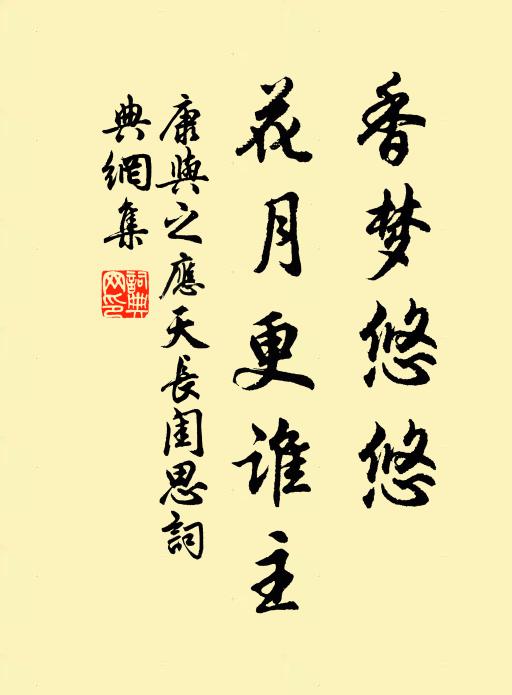 香梦悠悠
花月更谁主
康與之應天長閨思詞
典網集
詞典網印